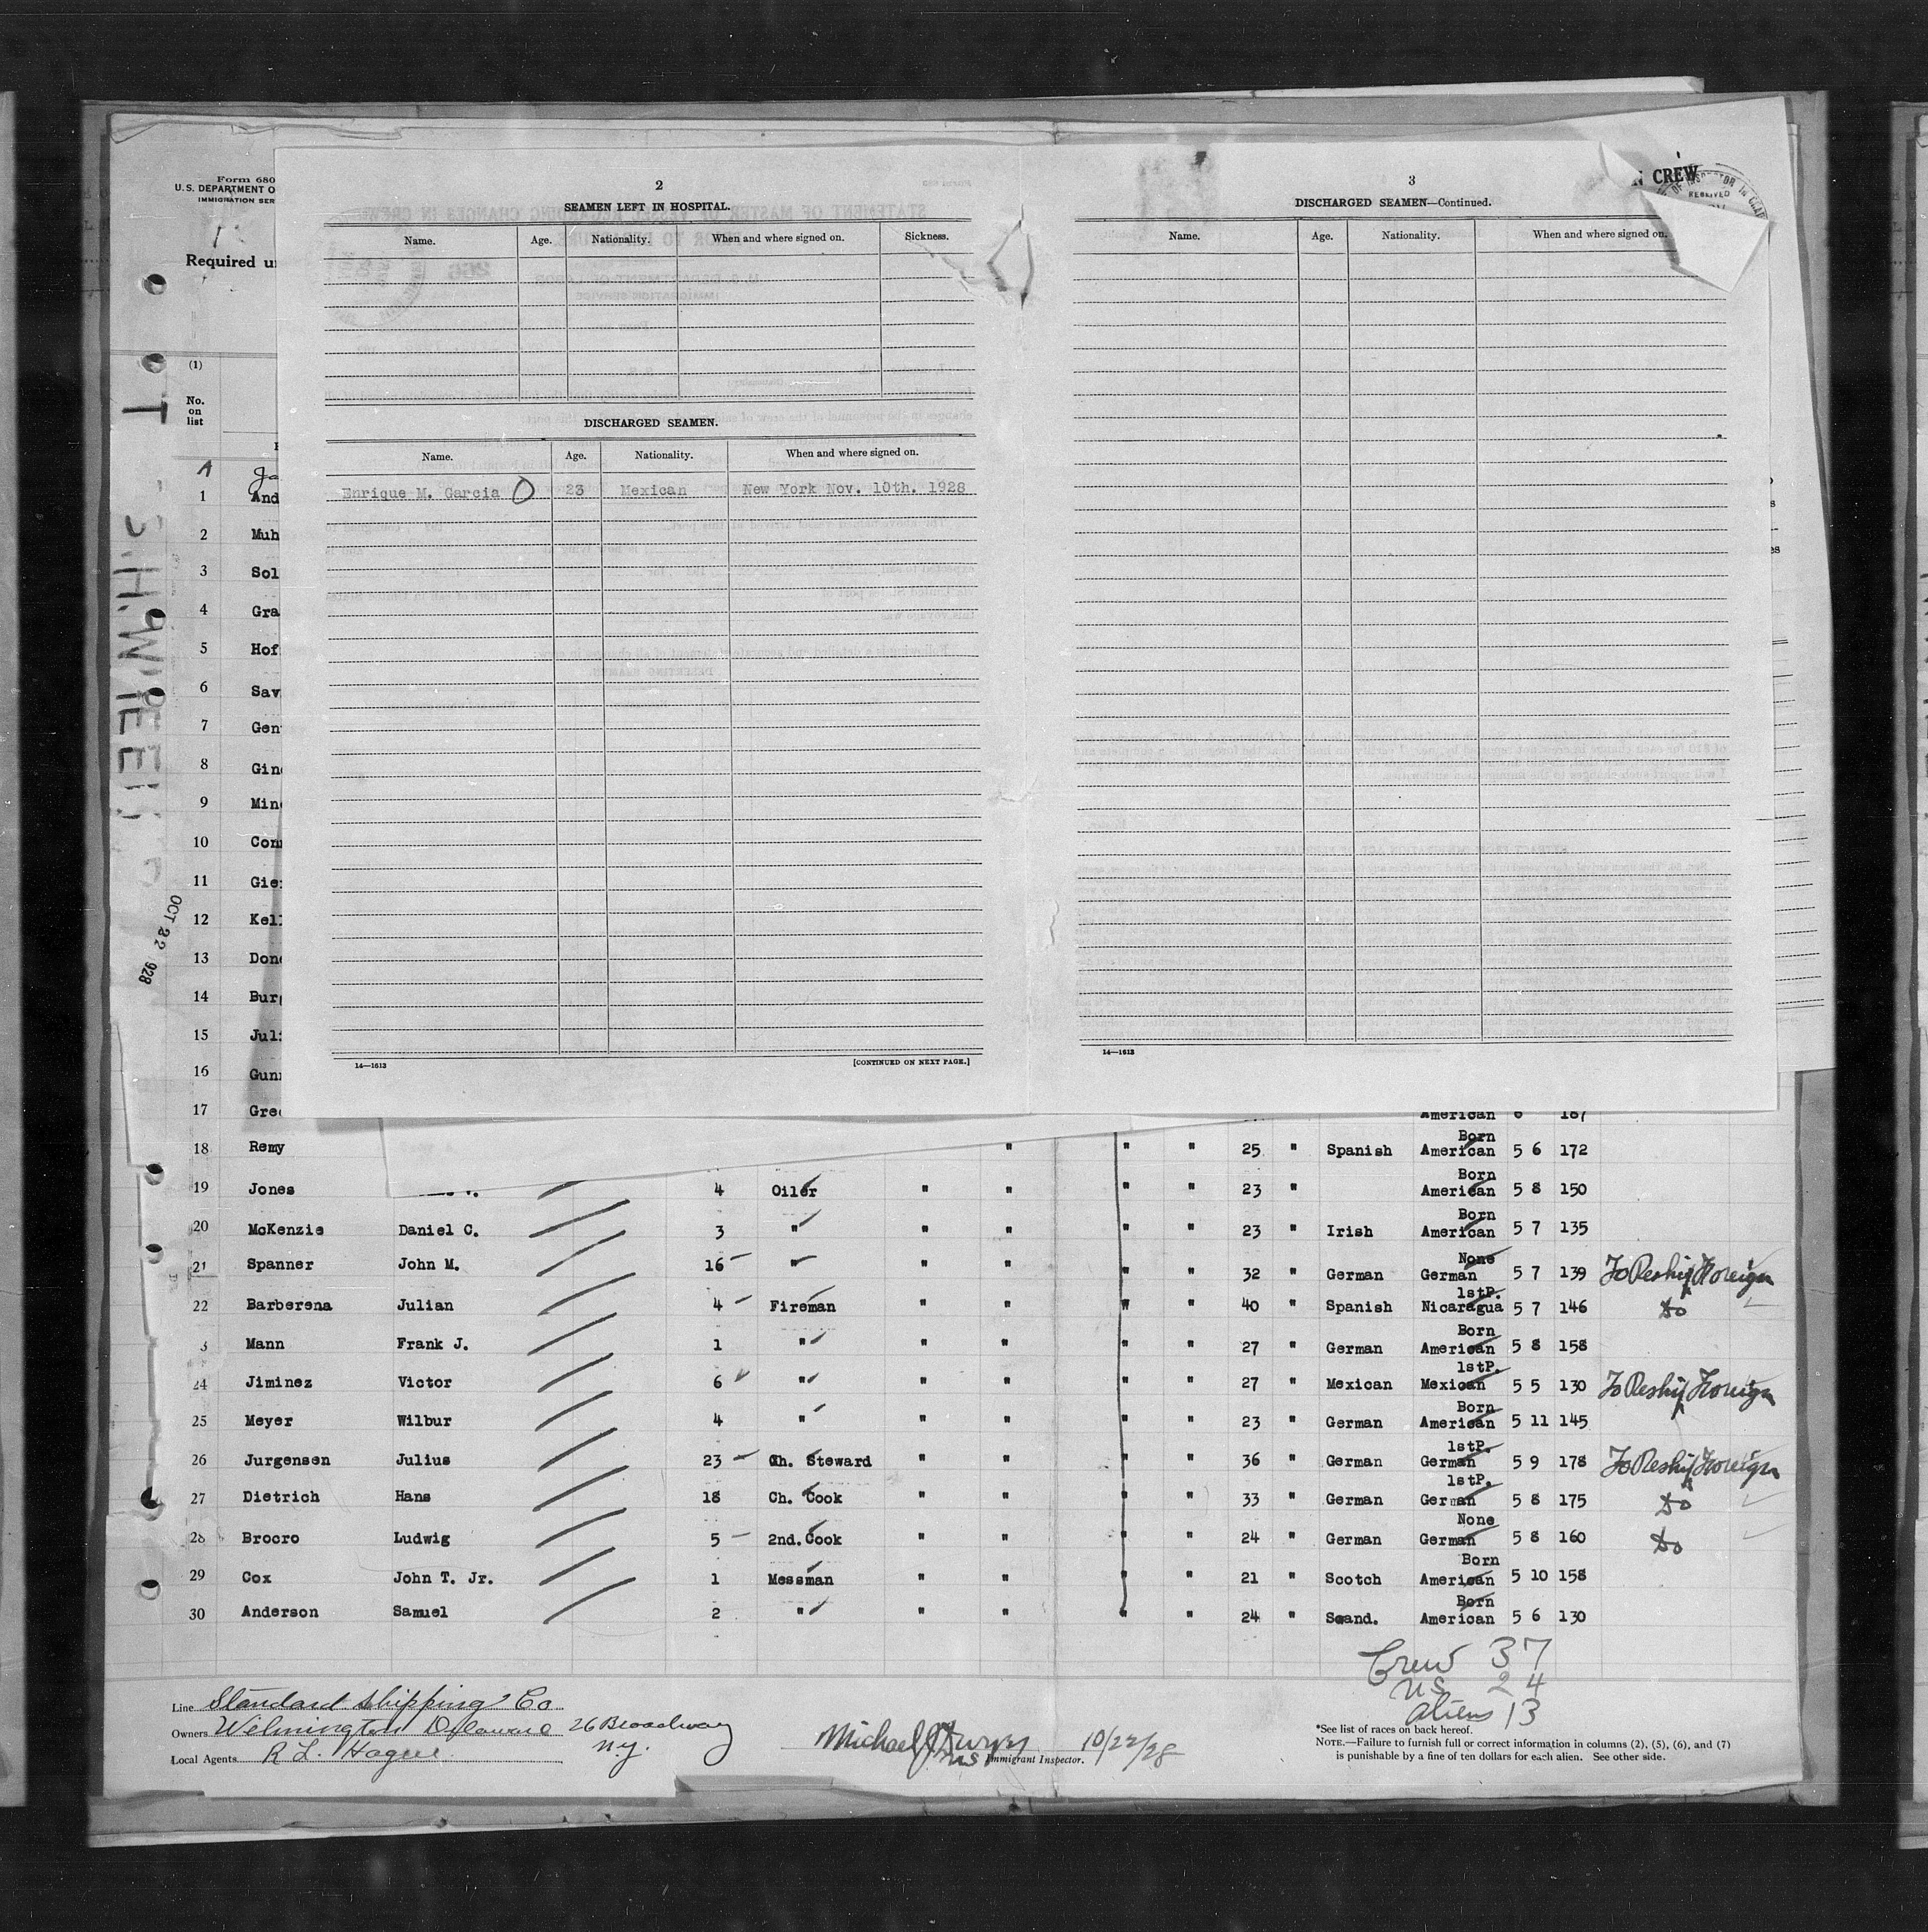 Form 680
U.S. DEPARTMENT O
IMMIGRATION SER
Required u
(1)
No.
on
list
2
SEAMEN LEFT IN HOSPITAL.
Name. Age. Nationality. When and where signed on. Sickness.
DISCHARGED SEAMEN.
Name. Age. Nationality. When and where signed on.
Enrique M. Garcia 23 Mexican New York Nov. 10th. 1928
14—1613 [CONTINUED ON NEXT PAGE.]
3
DISCHARGED SEAMEN—Continued.
Name. Age. Nationality. When and where signed on.
14—1613
N CREW
RECEIVED
A
1 And
2 Muh
3 Sol
4 Gra
5 Hof
6 Sav
7 Gen
8 Gin
9 Min
10 Con
11 Gie
12 Kell
13 Don
14 Bur
15 Juli
16 Gun
17 Gre American 6 187
18 Remy " " " 25 " Spanish Born American 5 6 172
19 Jones 4 Oiler " " " " 23 " Born American 5 8 150
20 McKenzie Daniel C. 3 " " " " " 23 " Irish Born American 5 7 135
21 Spanner John M. 16 " " " " " 32 " German None German 5 7 139 To Reship Foreign
22 Barberena Julian 4 Fireman " " " " 40 " Spanish 1stP. Nicaragua 5 7 146 Do
3 Mann Frank J. 1 " " " " " 27 " German Born American 5 8 158
24 Jiminez Victor 6 " " " " " 27 " Mexican 1stP. Mexican 5 5 130 To Reship Foreign
25 Meyer Wilbur 4 " " " " " 23 " German Born American 5 11 145
26 Jurgensen Julius 23 Ch. Steward " " " " 36 " German 1stP. German 5 9 178 To Reship Foreign
27 Dietrich Hans 18 Ch. Cook " " " " 33 " German 1stP. German 5 8 175 Do
28 Brocro Ludwig 5 2nd. Cook " " " " 24 " German None German 5 8 160 Do
29 Cox John T. Jr. 1 Messman " " " " 21 " Scotch Born American 5 10 158
30 Anderson Samuel 2 " " " " " 24 " Scand. Born American 5 6 130
OCT 22 928
Crew 37
US 24
Aliens 13
Line Standard Shipping Co
Owners Wilmington Delaware 26 Broadway
Local Agents R L. Hague N.Y.
Michael J.
Immigrant Inspector. 10/22/28
*See list of races on back hereof.
NOTE.—Failure to furnish full or correct information in columns (2), (5), (6), and (7)
is punishable by a fine of ten dollars for each alien. See other side.